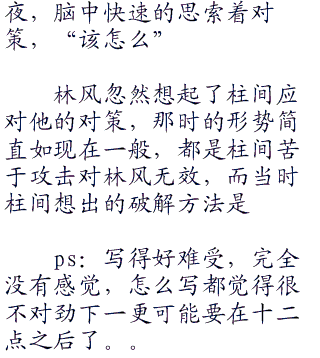 夜，脑中快速的思索着对
策，“该怎么”
林风忽然想起了柱间应
对他的对策，那时的形势简
直如现在一般，都是柱间苦
于攻击对林风无效，而当时
柱间想出的破解方法是
ps：写得好难受，完全
没有感觉，怎么写都觉得很
不对劲下一更可能要在十二
点之后了。。